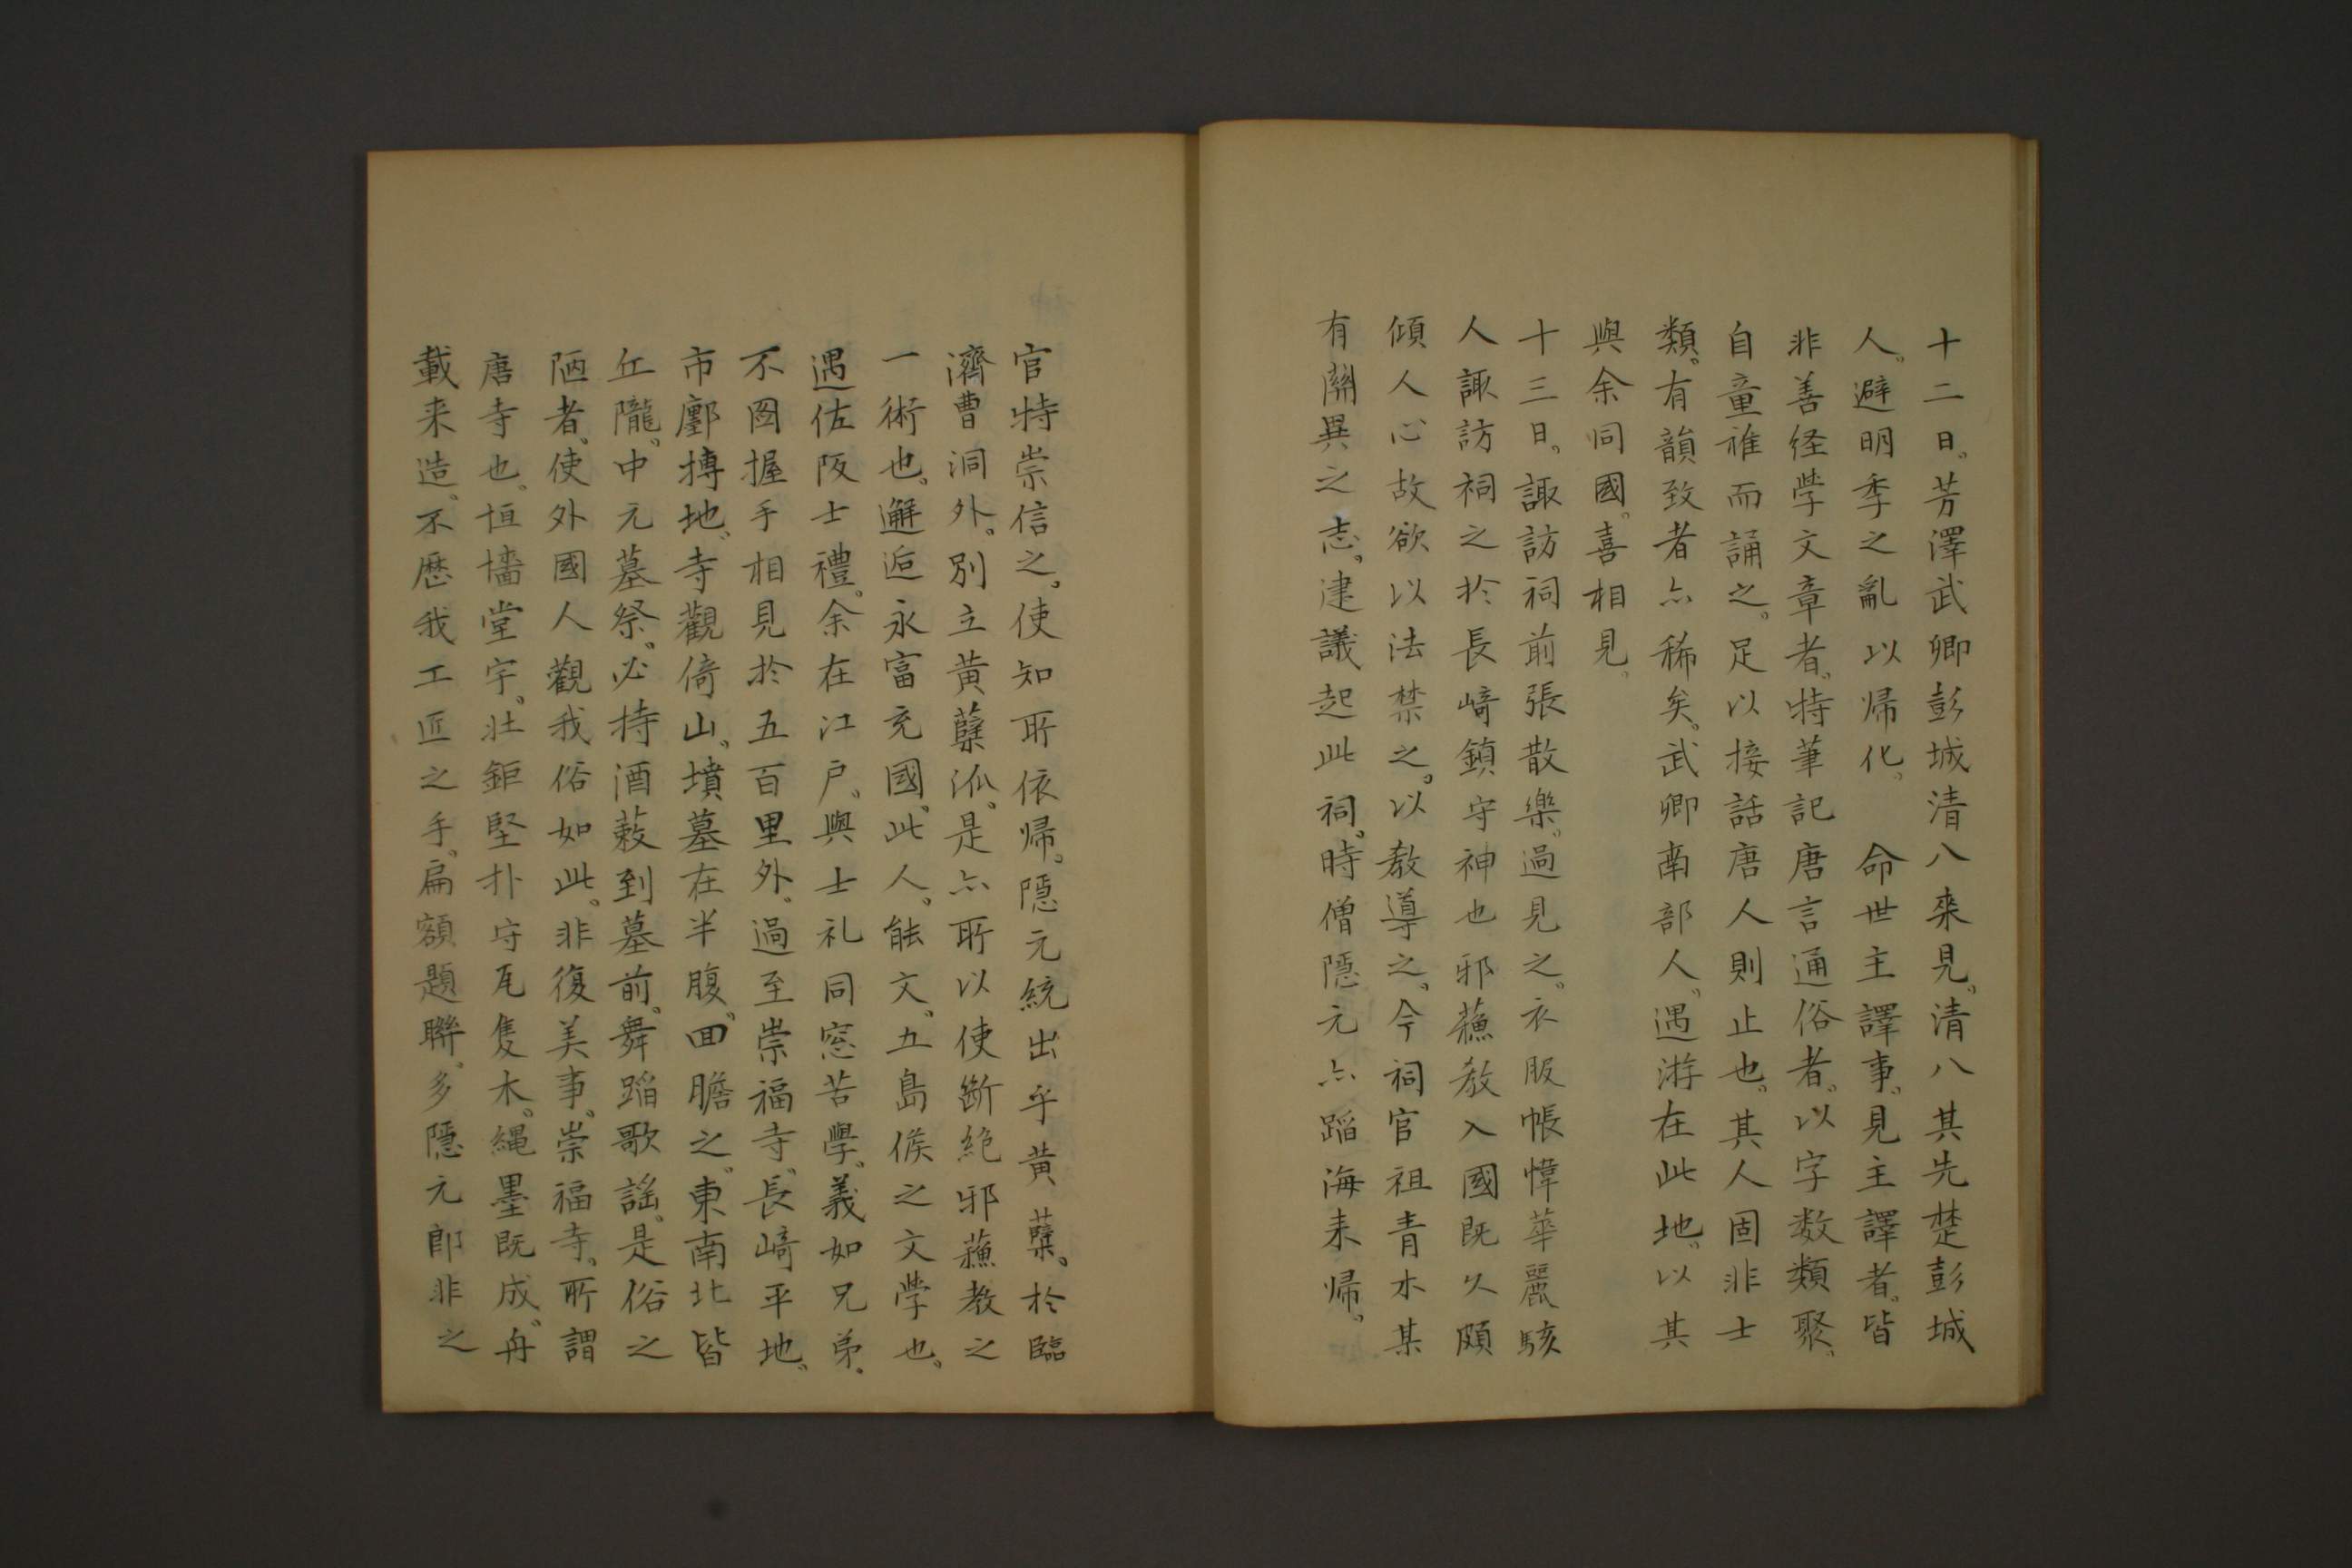 十二日。芳澤武卿彭城清八來見。清八其先楚彭城
人。避明季之亂以帰化。　命世主譯事。見主譯者。皆
非善経学文章者。特筆記唐言通俗者。以字数類聚。
自童稚而誦之。足以接話唐人則止也。其人固非士
類。有韻致者亦稀矣。武卿南部人。遇游在此地。以其
與余同國。喜相見。
十三日。諏訪祠前張散樂。過見之。衣服帳幃華麗駭
人諏訪祠之於長﨑鎮守神也邪蘓教入國既久頗
傾人心故欲以法禁之。以教導之。今祠官祖青木某
有闢異之志。建議起此祠。時僧隱元亦蹈海来帰。
官特崇信之。使知所依帰。隱元統出乎黄蘗。於臨
濟曹洞外。別立黄蘗派。是亦所以使断絶邪蘓教之
一術也。邂逅永富充國。此人。能文。五島侯之文學也。
遇佐阪士禮。余在江戸。與士礼同窓苦學。義如兄弟。
不圖握手相見於五百里外。過至崇福寺。長﨑平地。
市鄽摶地。寺觀倚山。墳墓在半腹。回瞻之。東南北皆
丘隴。中元墓祭。必持酒藙到墓前。舞蹈歌謡。是俗之
陋者。使外國人觀我俗如此。非復美事。崇福寺。所謂
唐寺也。垣墻堂宇。壮鉅堅朴守瓦隻木。縄墨既成。舟
載来造。不歴我工匠之手。扁額題聯。多隱元即非之